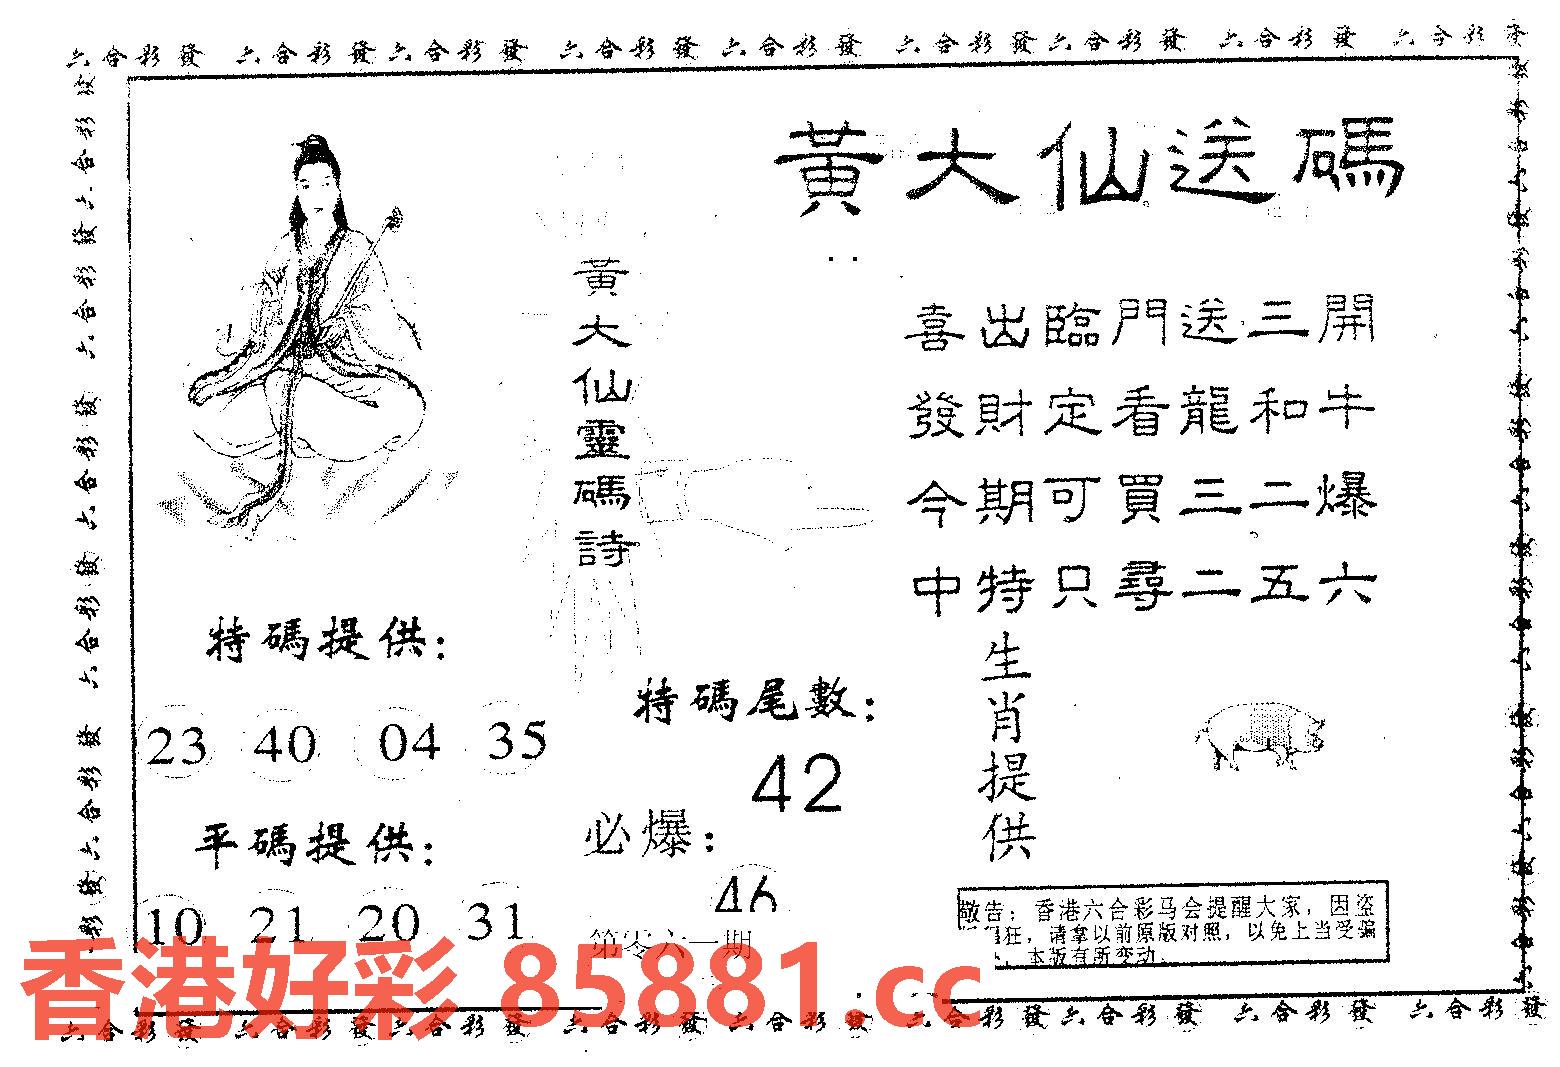 六合彩發 六合彩發 六合彩發 六合彩發 六合彩發 六合彩發 六合彩發 六合彩發 六合彩發
黃大仙送碼
黃大仙靈碼詩
喜出臨門送三開
發財定看龍和牛
今期可買三二爆
中特只尋二五六
特碼提供：
23 40 04 35
平碼提供：
10 21 20 31
特碼尾數：
42
必爆：
46
第零六一期
生肖提供
敬告：香港六合彩马会提醒大家，因盗
狂，请拿以前原版对照，以免上当受骗
本版有所变动
香港好彩 85881.cc
六合彩發 六合彩發 六合彩發 六合彩發 六合彩發 六合彩發 六合彩發 六合彩發 六合彩發